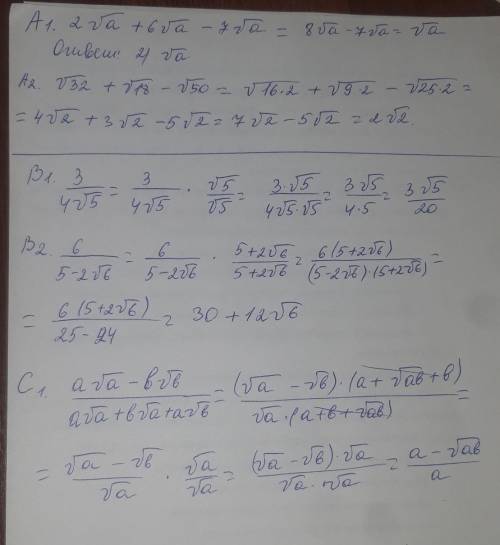 A1. 2√a + 6√a - 7√a = 8√a - 7√a = √a
Ответ: 2) √a
A2. √32 + √18 - √50 = √16·2 + √9·2 - √25·2 =
= 4√2 + 3√2 - 5√2 = 7√2 - 5√2 = 2√2.
B1. 3/4√5 = 3/4√5 · √5/√5 = 3·√5/4√5·√5 = 3√5/4·5 = 3√5/20
B2. 6/5-2√6 = 6/5-2√6 · 5+2√6/5+2√6 = 6(5+2√6)/(5-2√6)·(5+2√6) =
= 6(5+2√6)/25-24 = 30+12√6
C1. a√a - b√b/a√a+b√a+a√b = (√a - √b)·(a+√ab+b)/√a·(a+b+√ab) =
= √a - √b/√a · √a/√a = (√a - √b)·√a/√a·√a = a - √ab/a